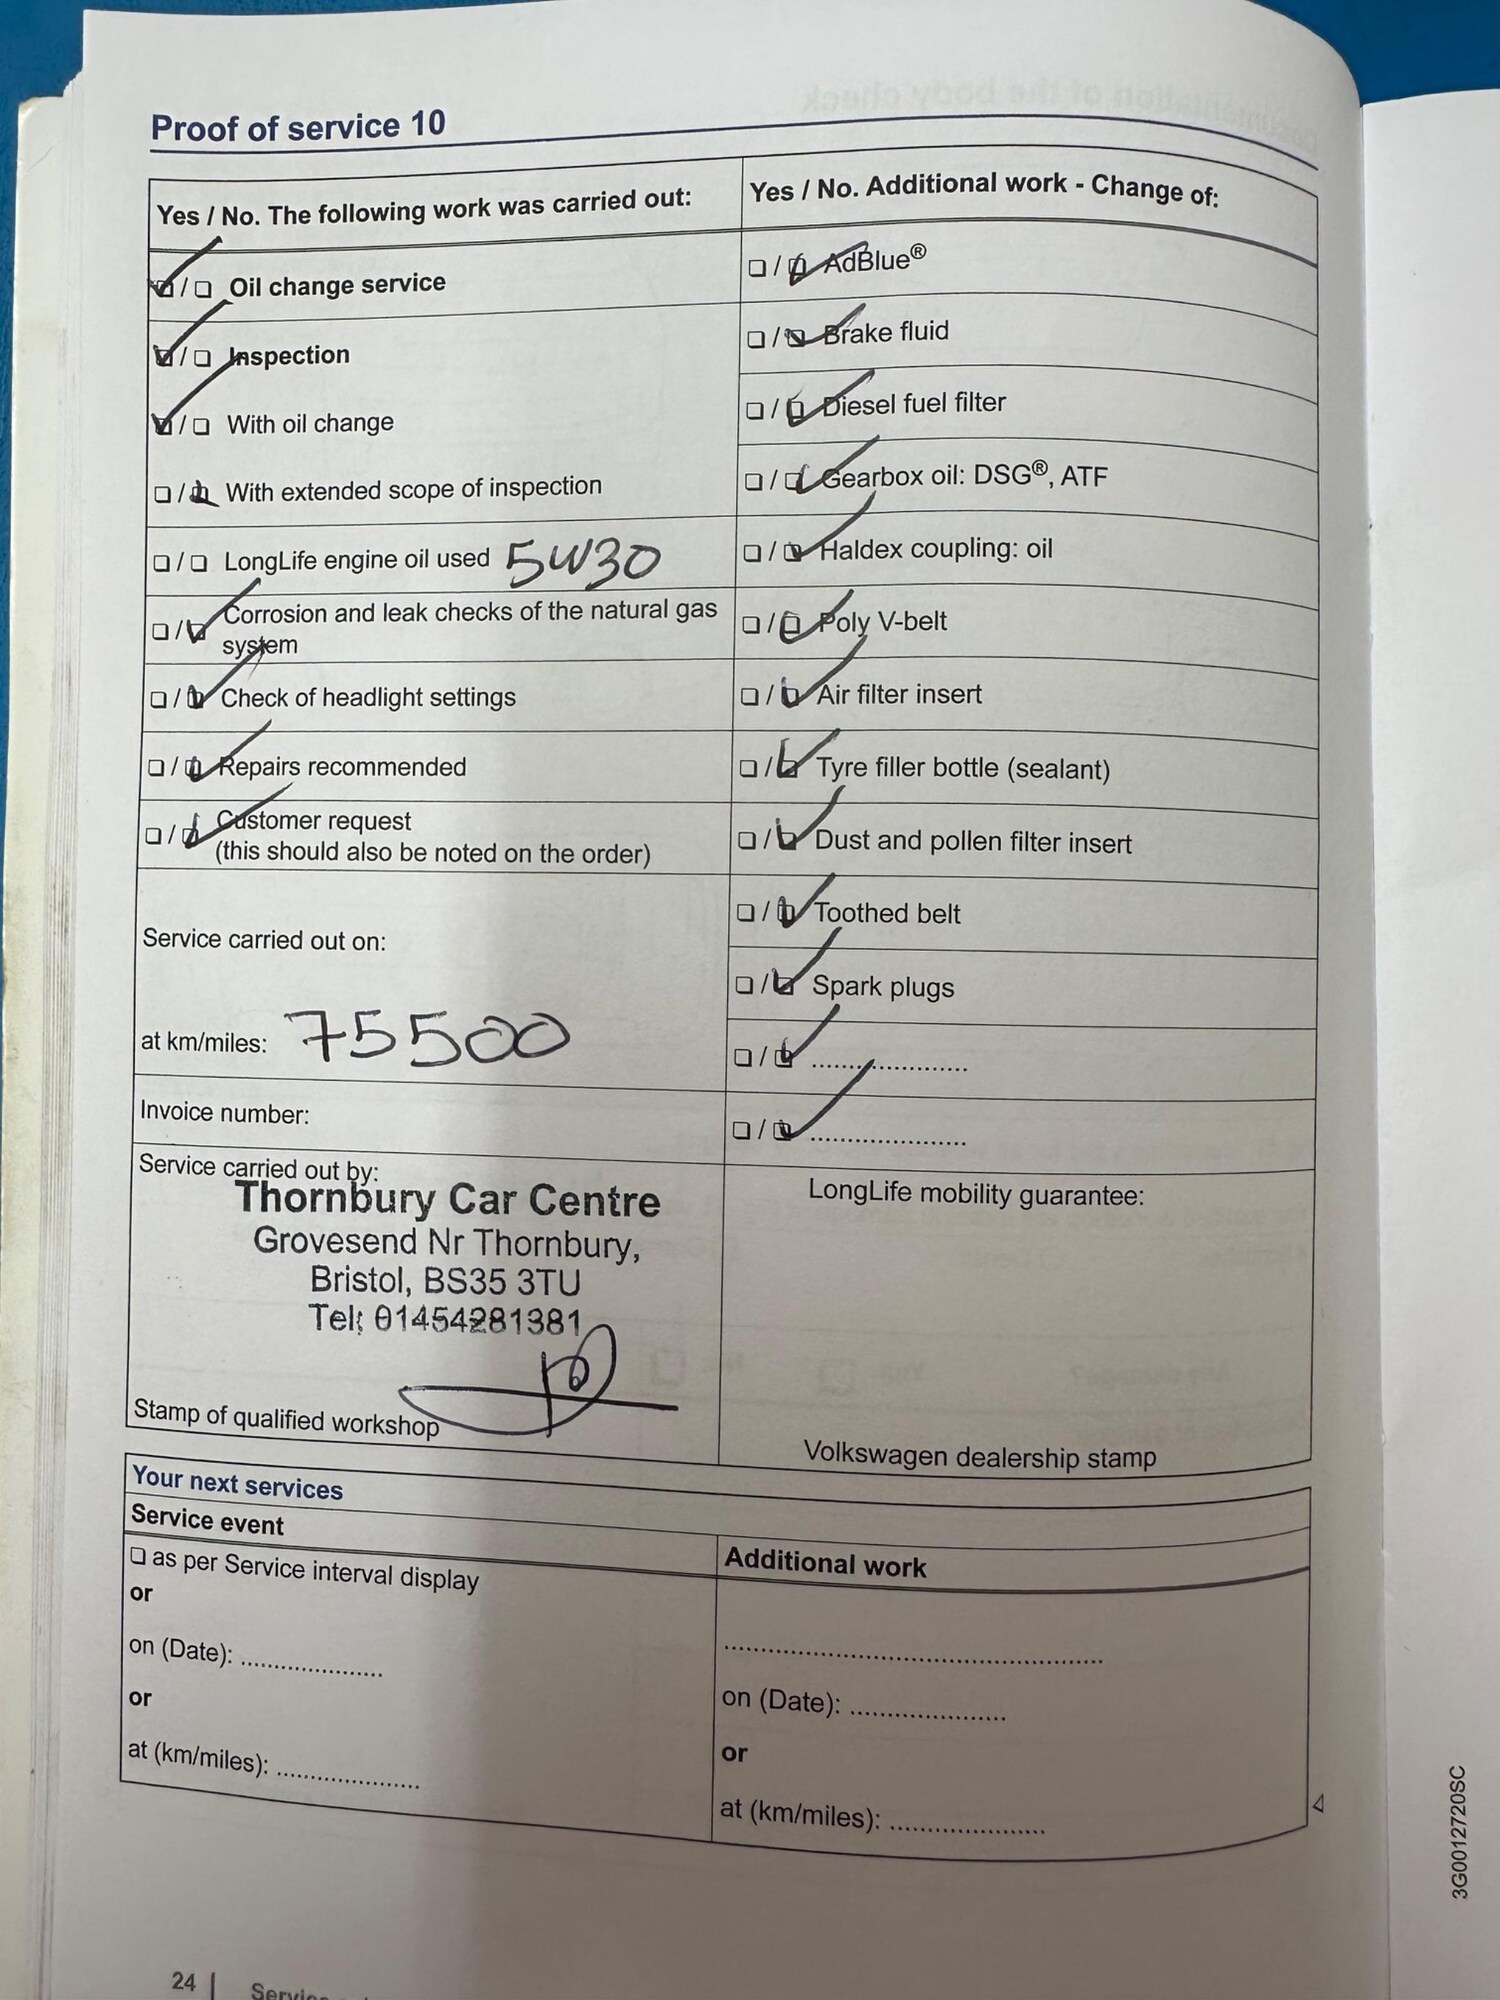 Proof of service 10
Yes / No. The following work was carried out:
☑ / ☐ Oil change service
☑ / ☐ Inspection
☑ / ☐ With oil change
☐ / ☑ With extended scope of inspection
☐ / ☐ LongLife engine oil used 5W30
☐ / ☑ Corrosion and leak checks of the natural gas
system
☐ / ☑ Check of headlight settings
☐ / ☑ Repairs recommended
☐ / ☑ Customer request
(this should also be noted on the order)
Service carried out on:
at km/miles: 75500
Invoice number:
Service carried out by:
Thornbury Car Centre
Grovesend Nr Thornbury,
Bristol, BS35 3TU
Tel: 01454281381
Stamp of qualified workshop
Yes / No. Additional work - Change of:
☐ / ☑ AdBlue®
☐ / ☑ Brake fluid
☐ / ☑ Diesel fuel filter
☐ / ☑ Gearbox oil: DSG®, ATF
☐ / ☑ Haldex coupling: oil
☐ / ☑ Poly V-belt
☐ / ☑ Air filter insert
☐ / ☑ Tyre filler bottle (sealant)
☐ / ☑ Dust and pollen filter insert
☐ / ☑ Toothed belt
☐ / ☑ Spark plugs
☐ / ☑ ......................
☐ / ☑ ......................
LongLife mobility guarantee:
Volkswagen dealership stamp
Your next services
Service event
☐ as per Service interval display
or
on (Date): .....................
or
at (km/miles): .....................
Additional work
.....................................................
on (Date): .....................
or
at (km/miles): .....................
3G0012720SC
24